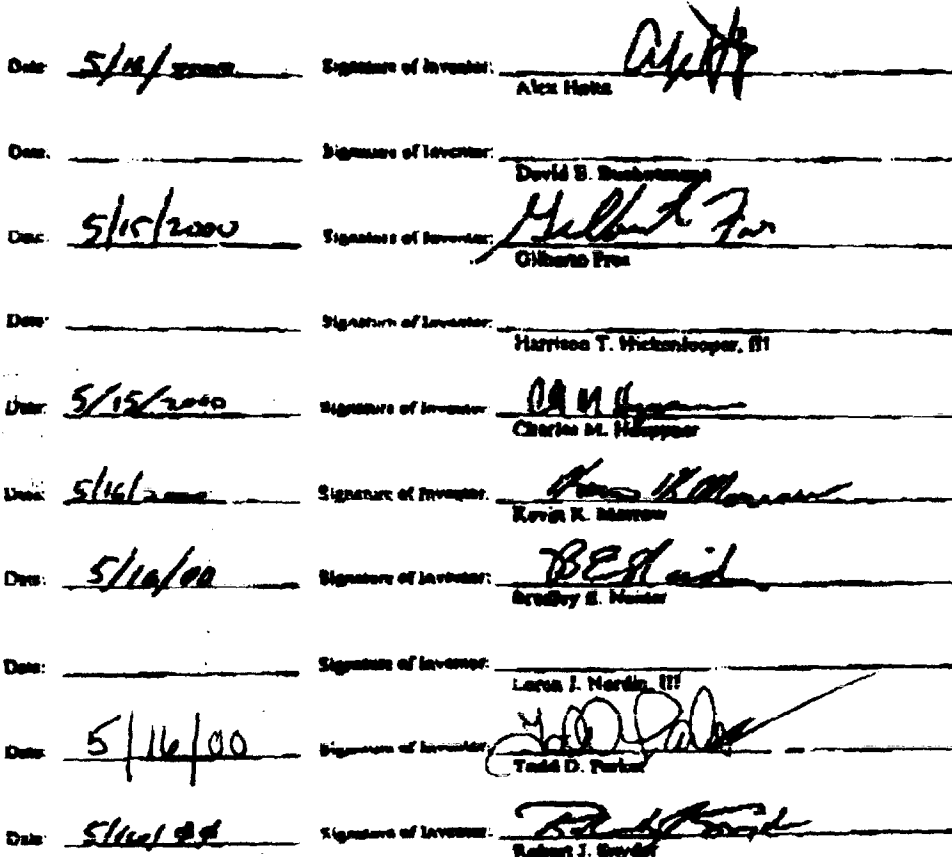 Date: 5/16/2000 Signature of Inventor:
Alex Holtz
Date: Signature of Inventor:
David B.
Date: 5/15/2000 Signature of Inventor:
Gilberto
Date: Signature of Inventor:
Harrison T. Hickenlooper, III
Date: 5/15/2000 Signature of Inventor:
Charles M. Hoeppner
Date: 5/16/2000 Signature of Inventor:
Kevin K. Morrow
Date: 5/16/00 Signature of Inventor:
Bradley E.
Date: Signature of Inventor:
Loren J. Nordin, III
Date: 5/16/00 Signature of Inventor:
Todd D. Parker
Date: 5/16/00 Signature of Inventor:
Robert J. Snyder